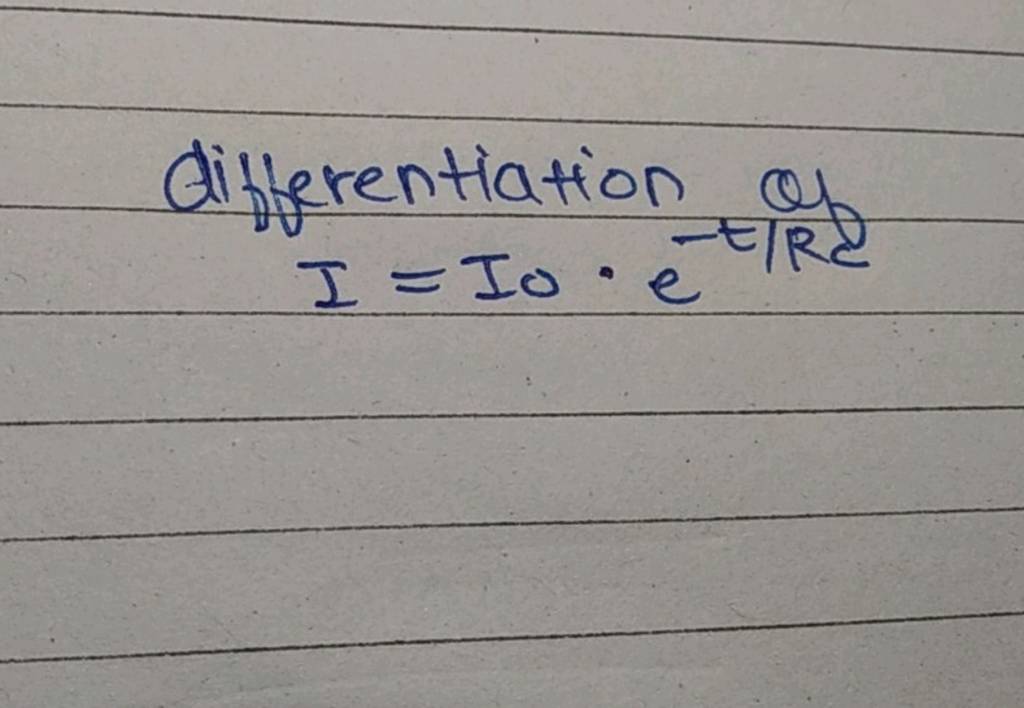 differentiation of
I = Io · e^-t/RC